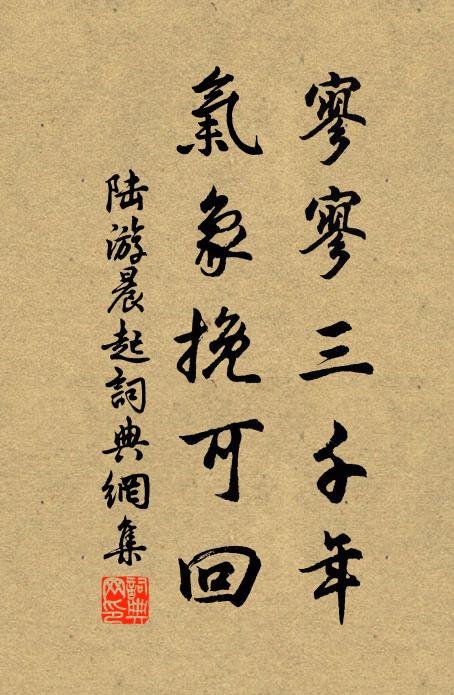 寥寥三千年
氣象挽可回
陆游晨起詞典網集
詞典網印